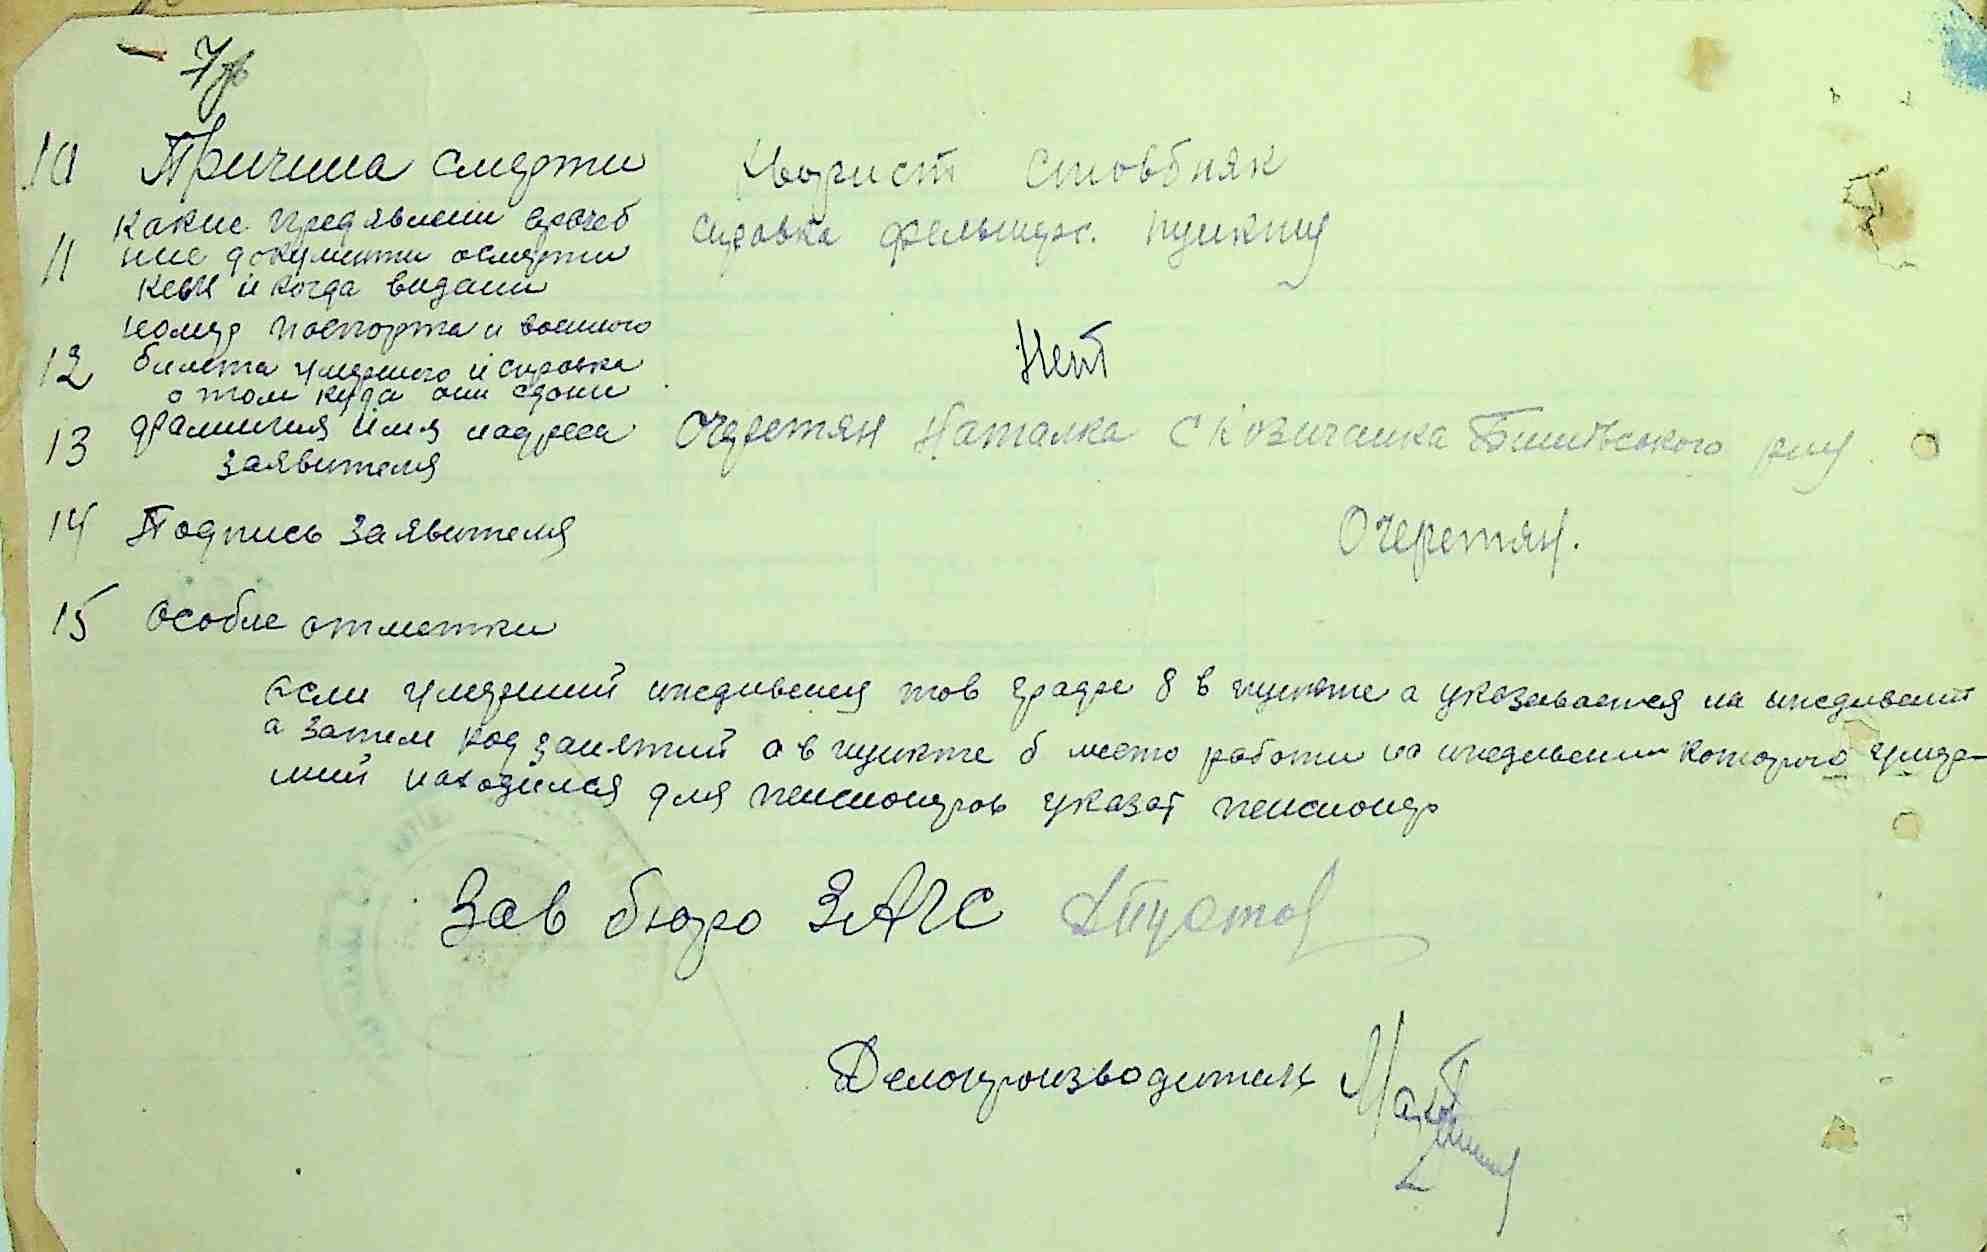 10 Причина смерти Хворист стовбняк
какие предявлени врачеб
11 ние документи осмерти справка фельшерс. пункту
кем и когда видани
номер паспорта и военного
12 билета умершого и справка Нет
о том куда они сдани
13 фамилия имя иадреса Очеретян Наталка с Козичанка
заявителя
14 Подпись Заявителя Очеретян.
15 особие отметки
если умерший иждивения тов графе 8 в пункте а указивается на иждивении
а затем род занятий а в пункте б место работи на иждивении которого умер-
ший находился для пенсионеров указат пенсионер
Зав бюро ЗАГС
Делопроизводитель